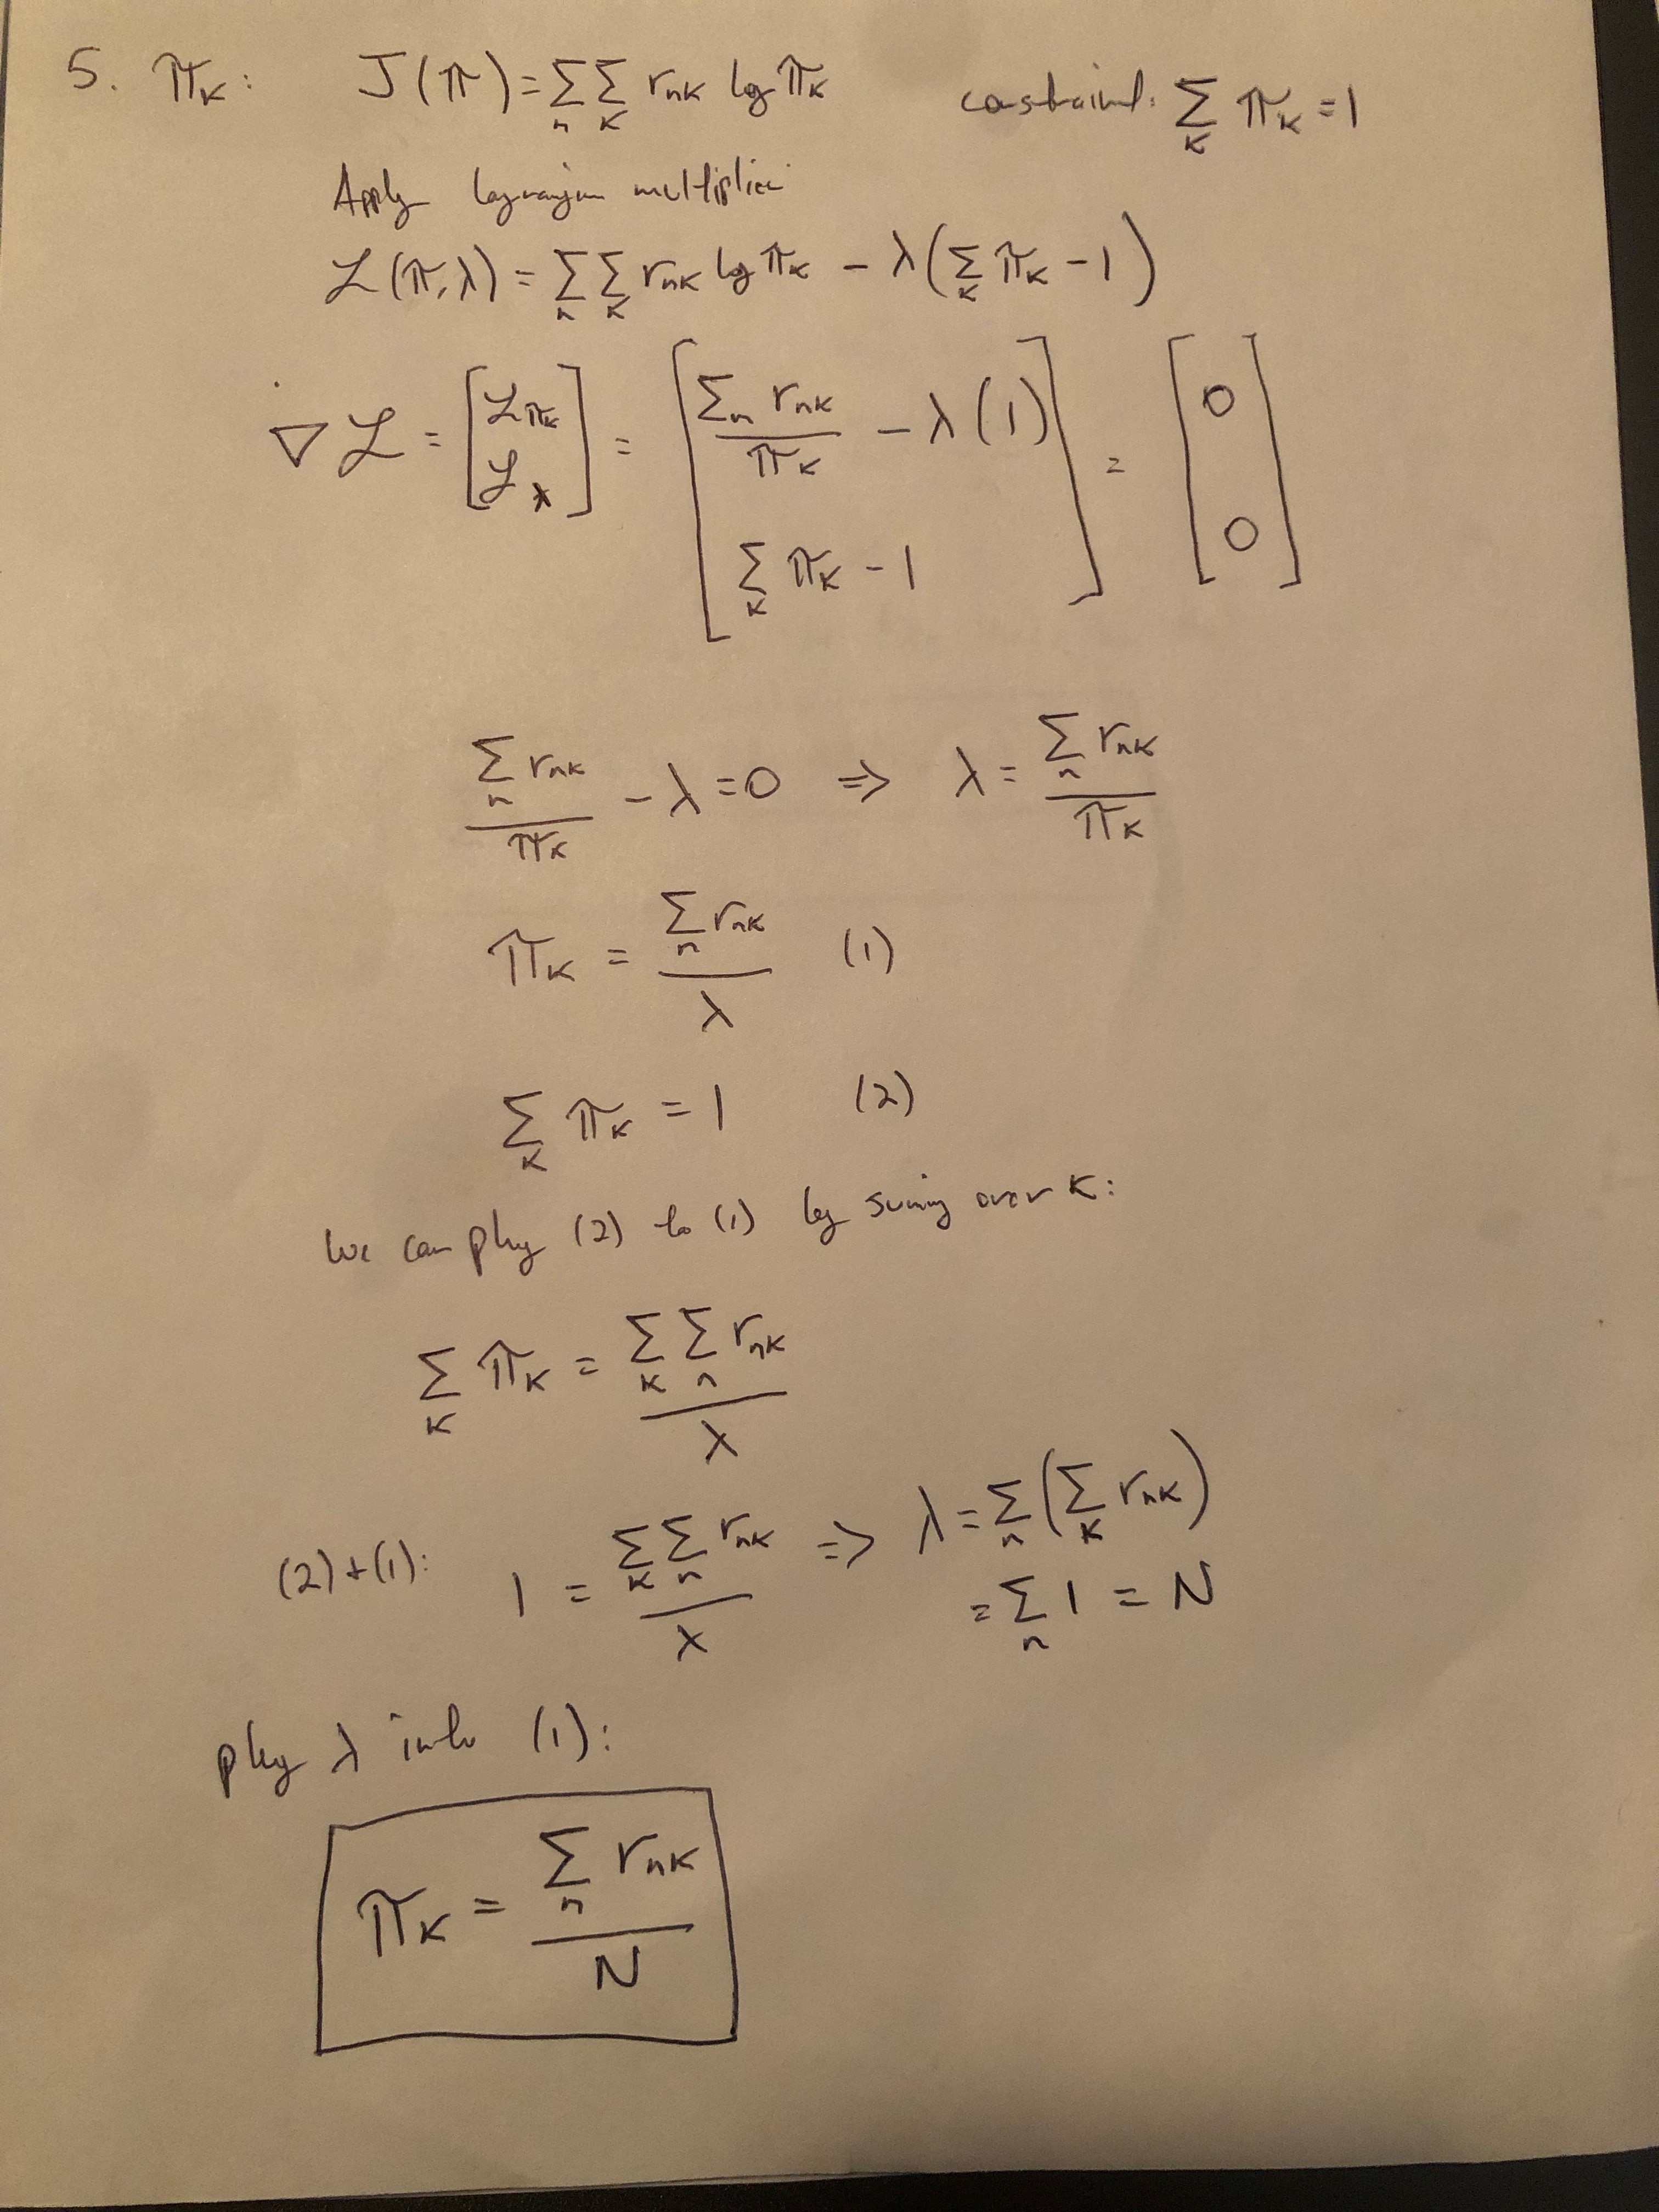 5. π_k: J(π) = Σ_n Σ_k r_nk log π_k constraint: Σ_k π_k = 1
Apply lagrangian multiplier
ℒ(π,λ) = Σ_n Σ_k r_nk log π_k − λ(Σ_k π_k − 1)
∇ℒ = [ℒ_π_k ; ℒ_λ] = [Σ_n r_nk / π_k − λ(1) ; Σ_k π_k − 1] = [0 ; 0]
Σ_n r_nk / π_k − λ = 0 ⇒ λ = Σ_n r_nk / π_k
π_k = Σ_n r_nk / λ (1)
Σ_k π_k = 1 (2)
We can plug (2) to (1) by suming over k:
Σ_k π_k = Σ_k Σ_n r_nk / λ
(2)+(1): 1 = Σ_k Σ_n r_nk / λ ⇒ λ = Σ_n (Σ_k r_nk)
= Σ_n 1 = N
plug λ into (1):
π_k = Σ_n r_nk / N